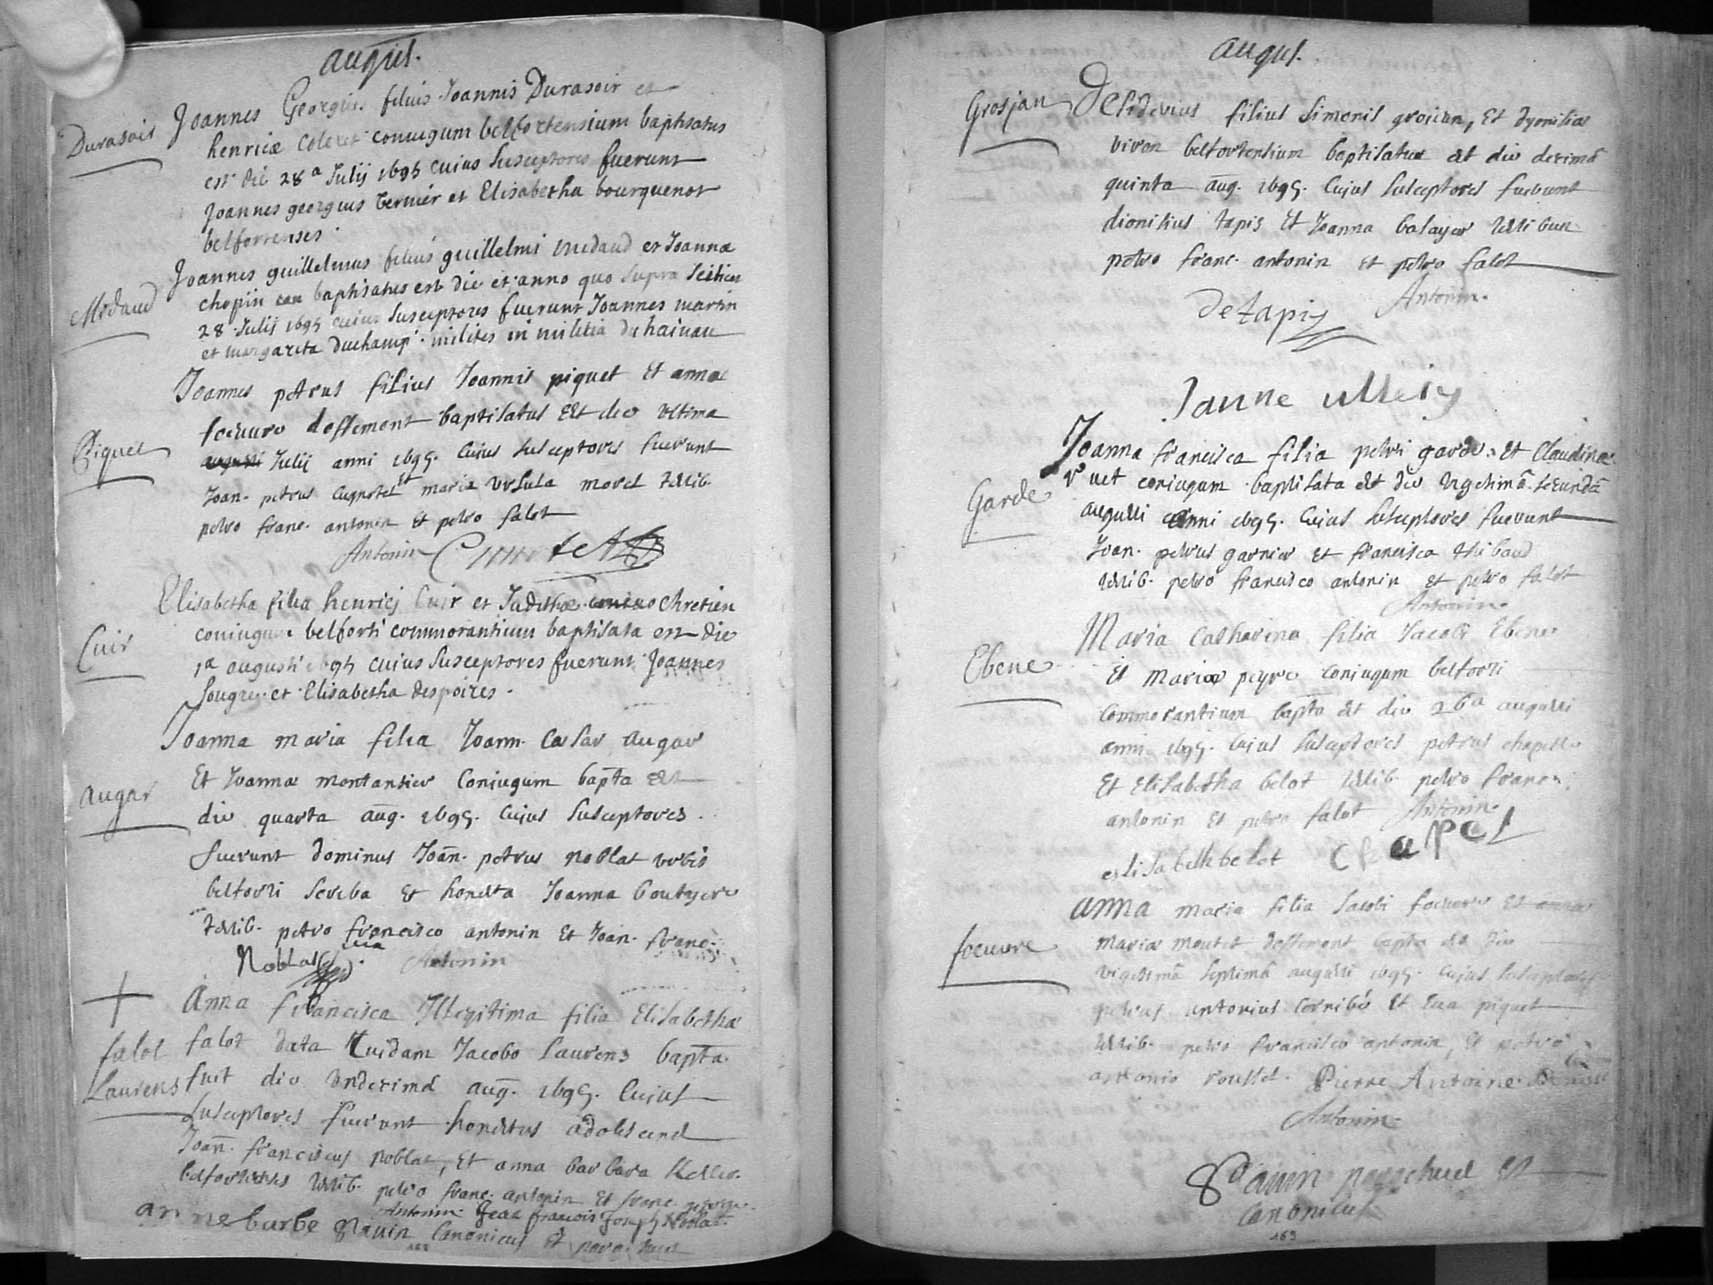 august.
Durasoir
Joannes Georgius filius Joannis Durasoir et
henricæ Coleret coniugum belfortensium baptisatus
est die 28ª Julij 1695 cuius Susceptores fuerunt
Joannes georgius Ternier et Elisabetha bourquenot
belfortenses.
Midaud
Joannes guillelmus filius guillelmi midaud et Joannæ
chopin baptisatus est die et anno quo Supra Scilicet
28 Julij 1695 cuius Susceptores fuerunt Joannes martin
et margareta duchamp milites in militia du hainau
Piquet
Joannes petrus filius Joannis piquet Et annæ
foeuure deffemont baptisatus Est die ultima
augusti Julij anni 1695. Cuius Susceptores fuerunt
Joan. petrus Cugnotet et maria Ursula morel testib.
petro franc. antonin Et petro falot
Antonin
Cuir
Elisabetha filia henricj Cuir et Judithæ chretien
coniugum belforti commorantium baptisata est die
1ª augusti 1695 cuius Susceptores fuerunt Joannes
Sougrey et Elisabetha despoires.
augar
Joanna maria filia Joann. Cæsar augar
Et Joannæ montantier Coniugum bapta Est
die quarta aug. 1695. Cujus Susceptores.
fuerunt dominus Joan. petrus noblat urbis
belforti Scriba Et honesta Joanna boutyere
testib. petro francisco antonin Et Joan. franc.
Noblat Antonin
+
falot
Laurens
Anna francisca Illegitima filia Elisabethæ
falot data Cuidam Jacobo Laurens bapta.
fuit die undecima aug. 1695. Cujus
Susceptores fuerunt honestus adolescens
Joan. franciscus noblat, Et anna barbara Keller.
belfortenses testib. petro franc. antonin Et franc.
Antonin Jean françois Joseph Noblat.
anne barbe Canonicus Et
augus.
Grosjan
Desiderius filius Simonis grosian, Et dyonisiæ
viron belfortensium baptisatus est die decima
quinta aug. 1695. Cujus Susceptores fuerunt
dionisius tapis Et Joanna balayer testibus
petro franc. antonin Et petro falot
Antonin.
de tapis
Janne
Garde
Joanna francisca filia petri garde Et Claudinæ
vuet coniugum baptisata est die vigesima secunda
augusti anni 1695. Cujus Susceptores fuerunt
Joan. petrus garnier Et francisca thibaud
testib. petro francisco antonin Et petro falot
Antonin.
Ebene
Maria Catharina filia Jacobi Ebene
Et Mariæ peyre coniugum belforti
commorantium bapta est die 26ª augusti
anni 1695. Cujus Susceptores petrus chapelle
Et Elisabetha belot testib. petro franc.
antonin Et petro falot Antonin.
elisabeth belot chapel
foeuure
anna maria filia Jacobi foeuure Et annæ
mariæ moutet deffemont bapta est die
vigesima septima augusti 1695. Cujus Susceptores
petrus antonius Et Eua piquet
testib. petro francisco antonin, Et petro
antonio roussel. Pierre Antoine
Antonin
parochus Et
Canonicus
163